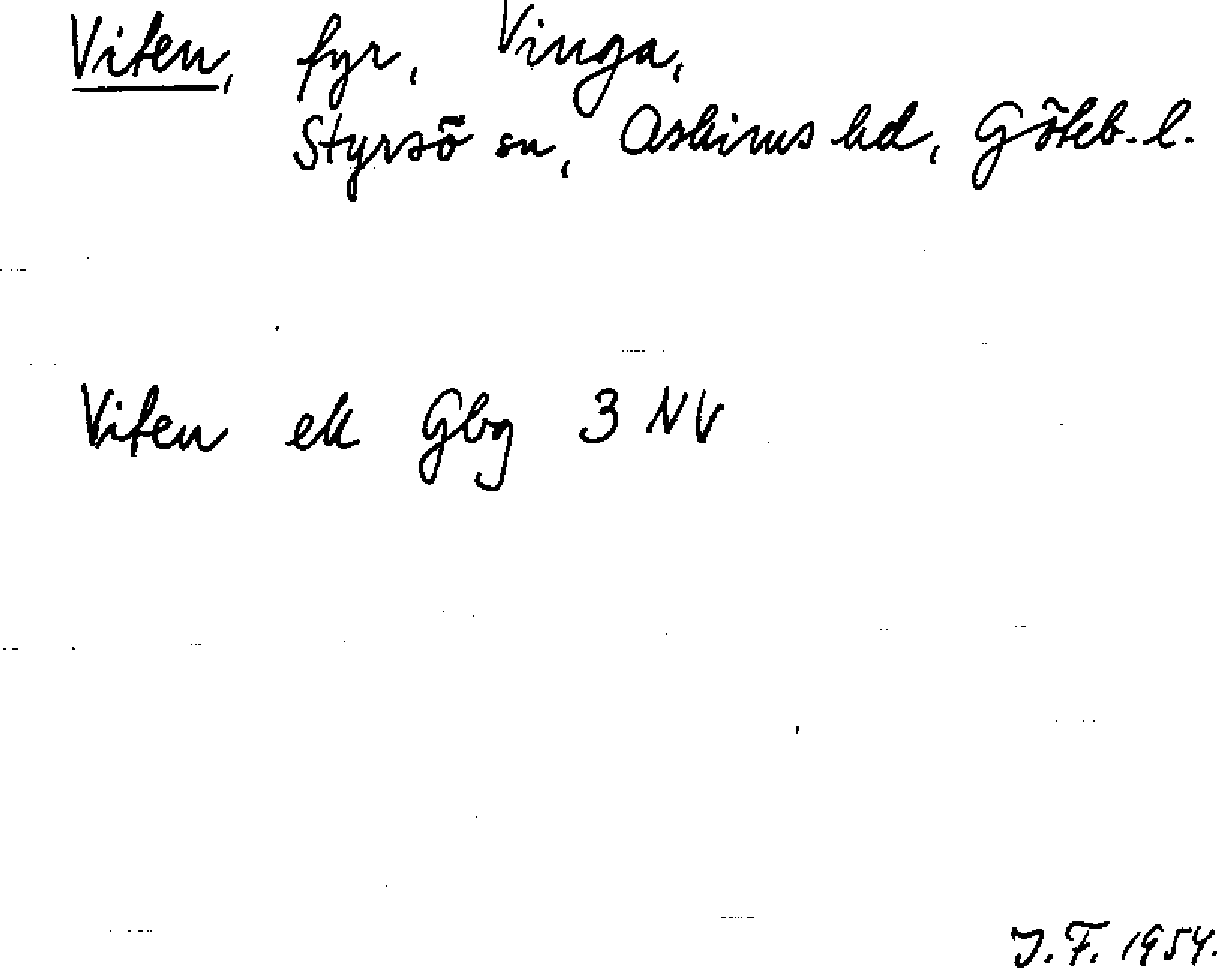 Viten, fyr, Vinga,
Styrsö sn, Askims hd, Göteb. l.
Viten ek Gbg 3 NV
J.F. 1954.